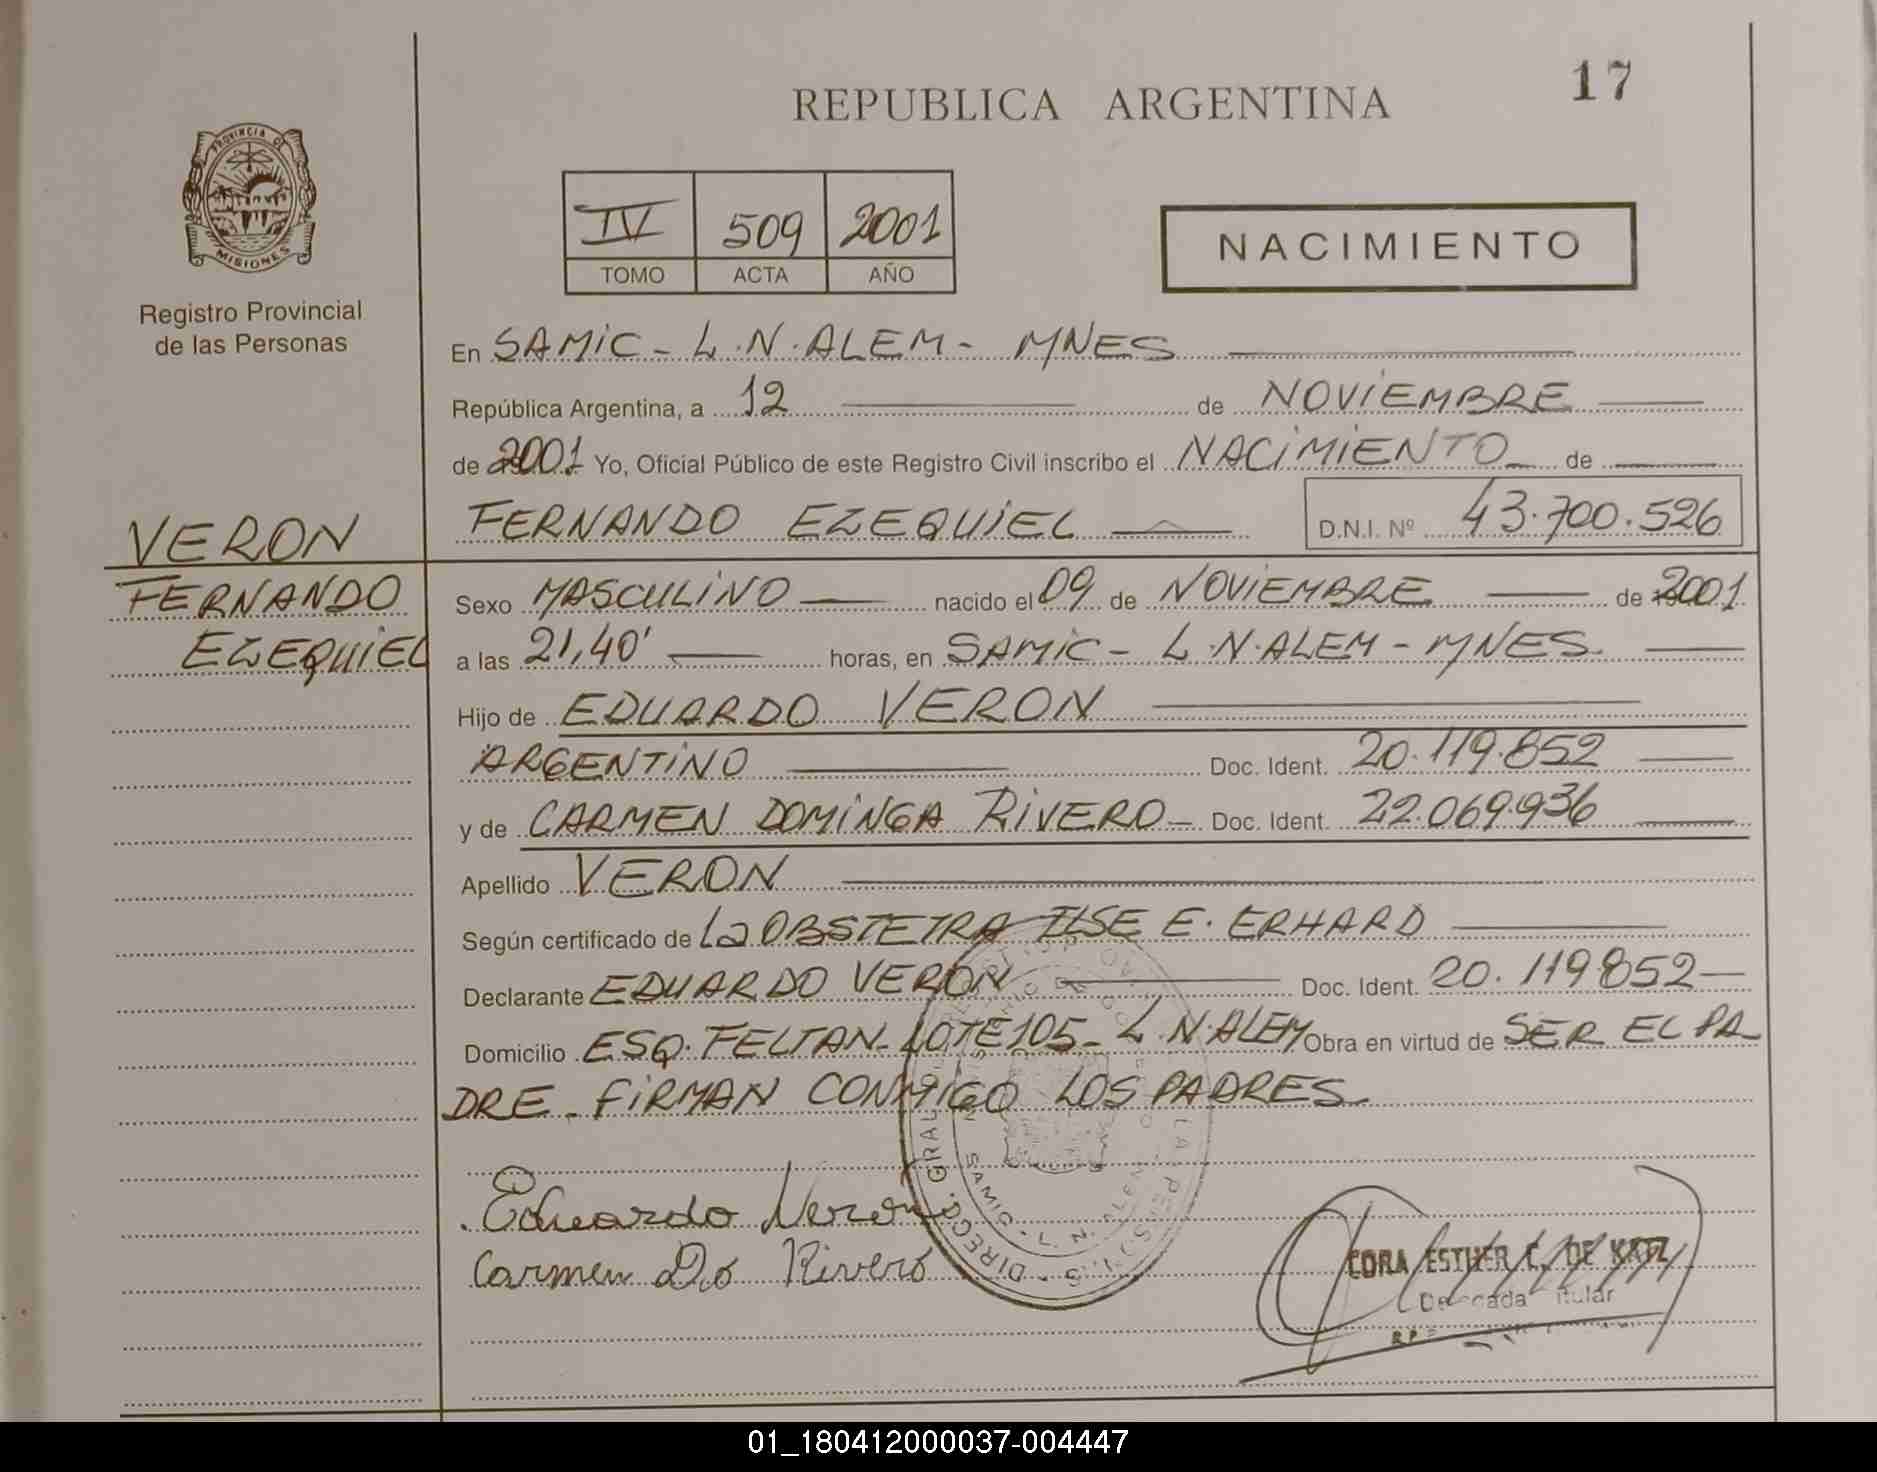 17
REPUBLICA ARGENTINA
PROVINCIA DE
MISIONES
Registro Provincial
de las Personas
IV 509 2001
TOMO ACTA AÑO
NACIMIENTO
En SAMIC - L.N. ALEM - MNES
República Argentina, a 12 de NOVIEMBRE
de 2001 Yo, Oficial Público de este Registro Civil inscribo el NACIMIENTO de
FERNANDO EZEQUIEL D.N.I. Nº 43.700.526
VERON
FERNANDO
EZEQUIEL
Sexo MASCULINO nacido el 09 de NOVIEMBRE de 2001
a las 21,40' horas, en SAMIC - L.N. ALEM - MNES.
Hijo de EDUARDO VERON
ARGENTINO Doc. Ident. 20.119.852
y de CARMEN DOMINGA RIVERO - Doc. Ident. 22.069.936
Apellido VERON
Según certificado de La OBSTETRA ILSE E. ERHARD
Declarante EDUARDO VERON Doc. Ident. 20.119.852
Domicilio ESQ. FELTAN - LOTE 105 - L.N. ALEM Obra en virtud de SER EL PA
DRE - FIRMAN CONMIGO LOS PADRES.
Eduardo Veron
Carmen Do Rivero
DIRECC. GRAL
SAMIC - L. N. ALEM
CORA ESTHER C. DE KATZ
01_180412000037-004447